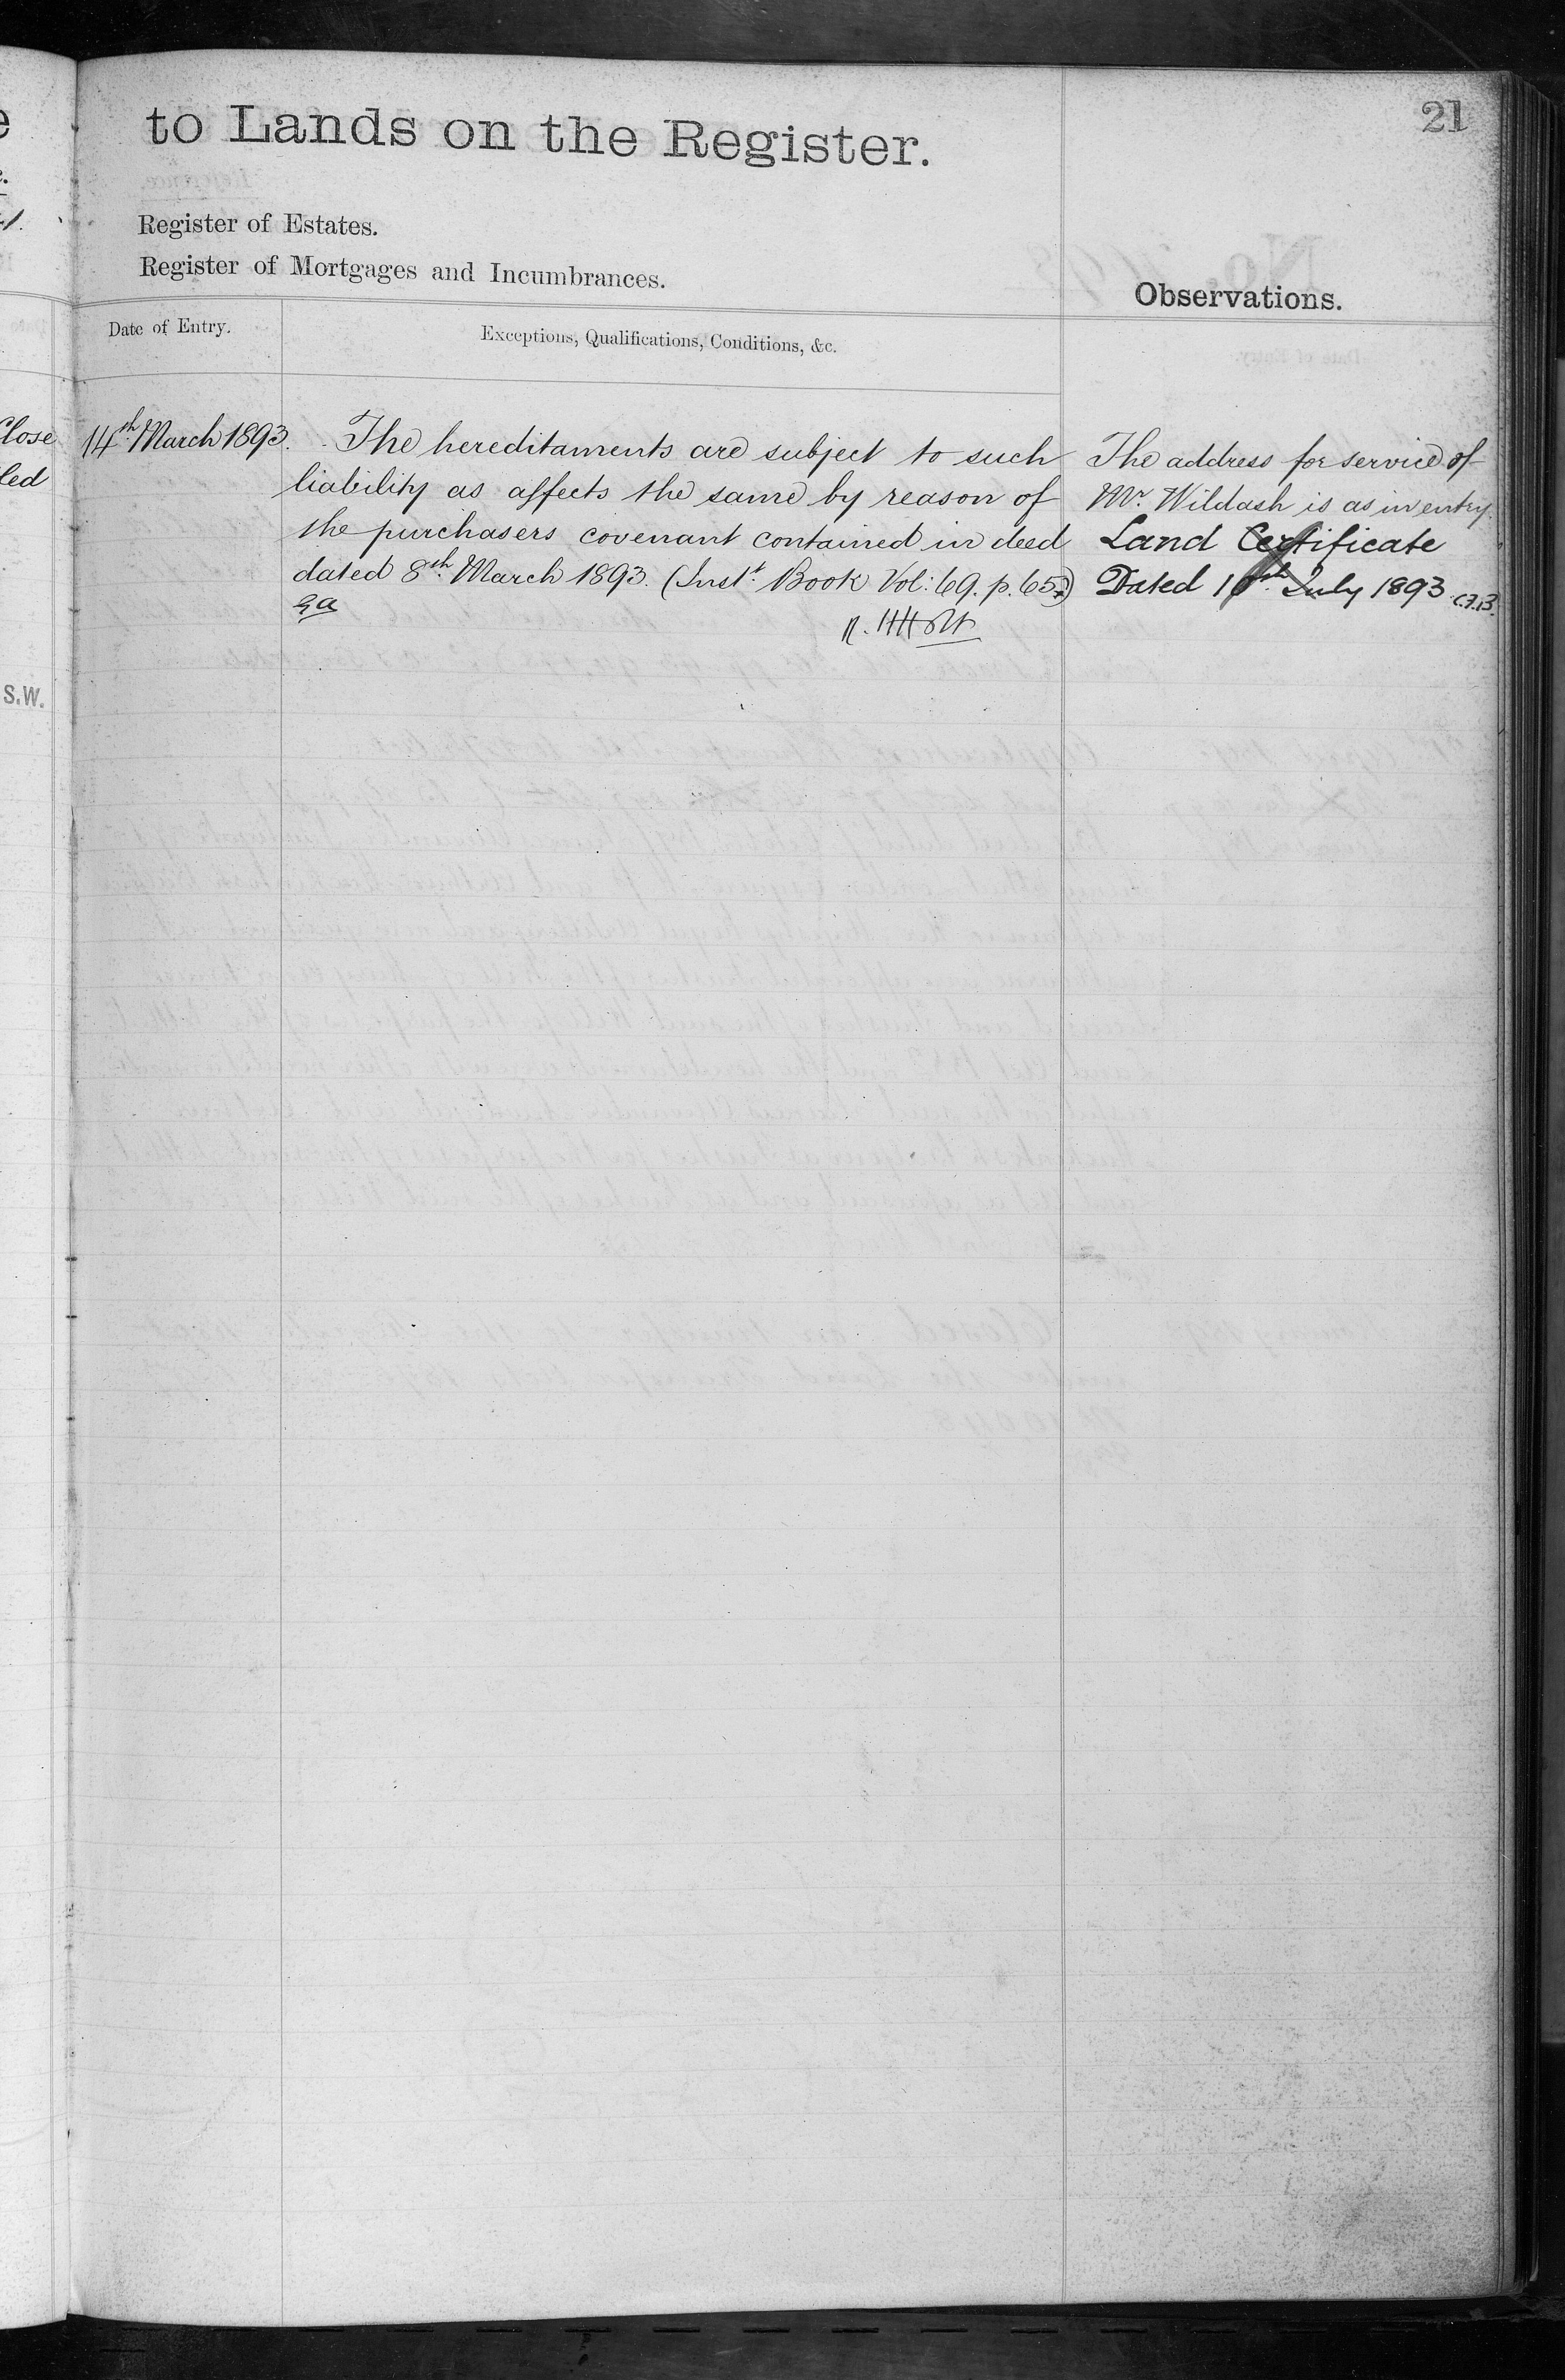 21
to Lands on the Register.
Register of Estates.
Register of Mortgages and Incumbrances.
Observations.
Date of Entry.
Exceptions, Qualifications, Conditions, &c.
14th March 1893. The hereditaments are subject to such
liability as affects the same by reason of
the purchasers covenant contained in deed
dated 8th March 1893. (Inst. Book Vol: 69. p. 65.)
The address for service of
Mr. Wildash is as in entry.
Land Certificate
Dated 10th July 1893 C.F.B.
Close
led
S.W.